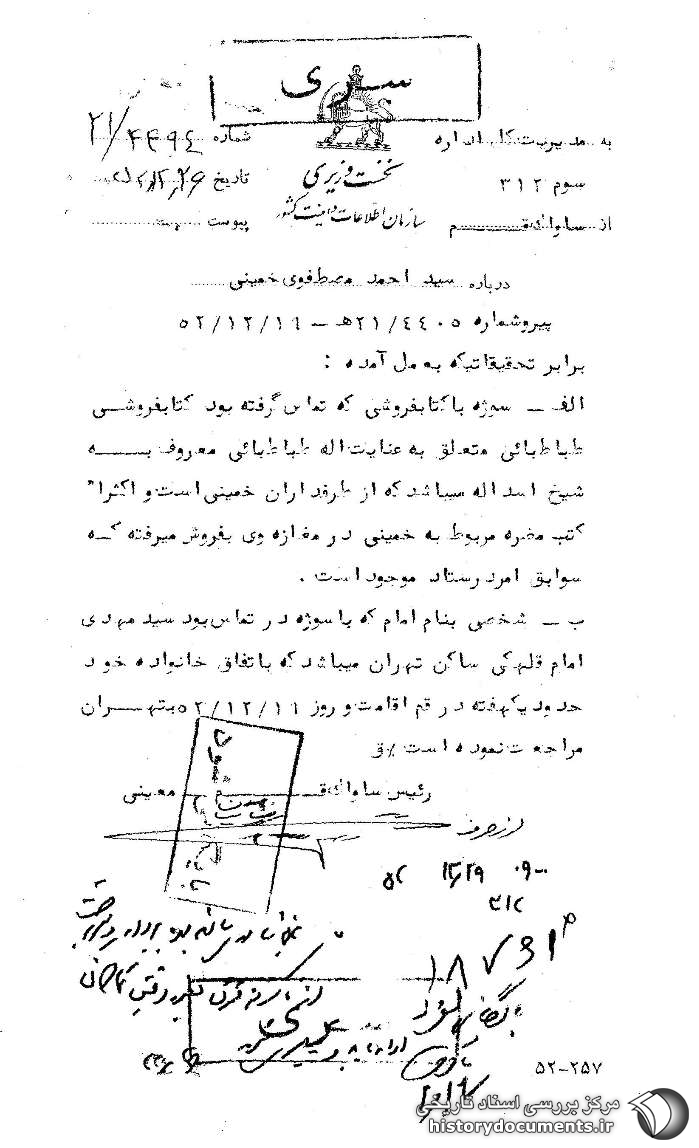 سری
به مدیریت کل اداره
سوم ۳۱۲
از ساواک قم
نخست وزیری
سازمان اطلاعات و امنیت کشور
شماره ۲۱/۴۴۹۴
تاریخ
پیوست
درباره سید احمد مصطفوی خمینی
پیروشماره ۲۱/٤٤۰۵هـ - ۵۲/۱۲/۱٦
برابر تحقیقاتیکه بعمل آمده :
الف - سوژه باکتابفروشی که تماس گرفته بود کتابفروشی
طباطبائی متعلق به عنایت اله طباطبائی معروف به
شیخ اسداله میباشد که از طرفداران خمینی است و اکثرا"
کتب مضره مربوط به خمینی در مغازه وی بفروش میرفته که
سوابق امر در ستاد موجود است .
ب - شخصی بنام امام که با سوژه در تماس بود سید مهدی
امام قلهکی ساکن تهران میباشد که باتفاق خانواده خود
حدود یکهفته در قم اقامت و روز ۵۲/۱۲/۱٦ بتهران
مراجعت نموده است %ق
رئیس ساواک قم معینی
از طرف
۵۲ ۱۲/۲۹ ۰۹۰۰
۳۱۲
بایگانی شود
۵۲-۲۵۷
مرکز بررسی اسناد تاریخی
historydocuments.ir